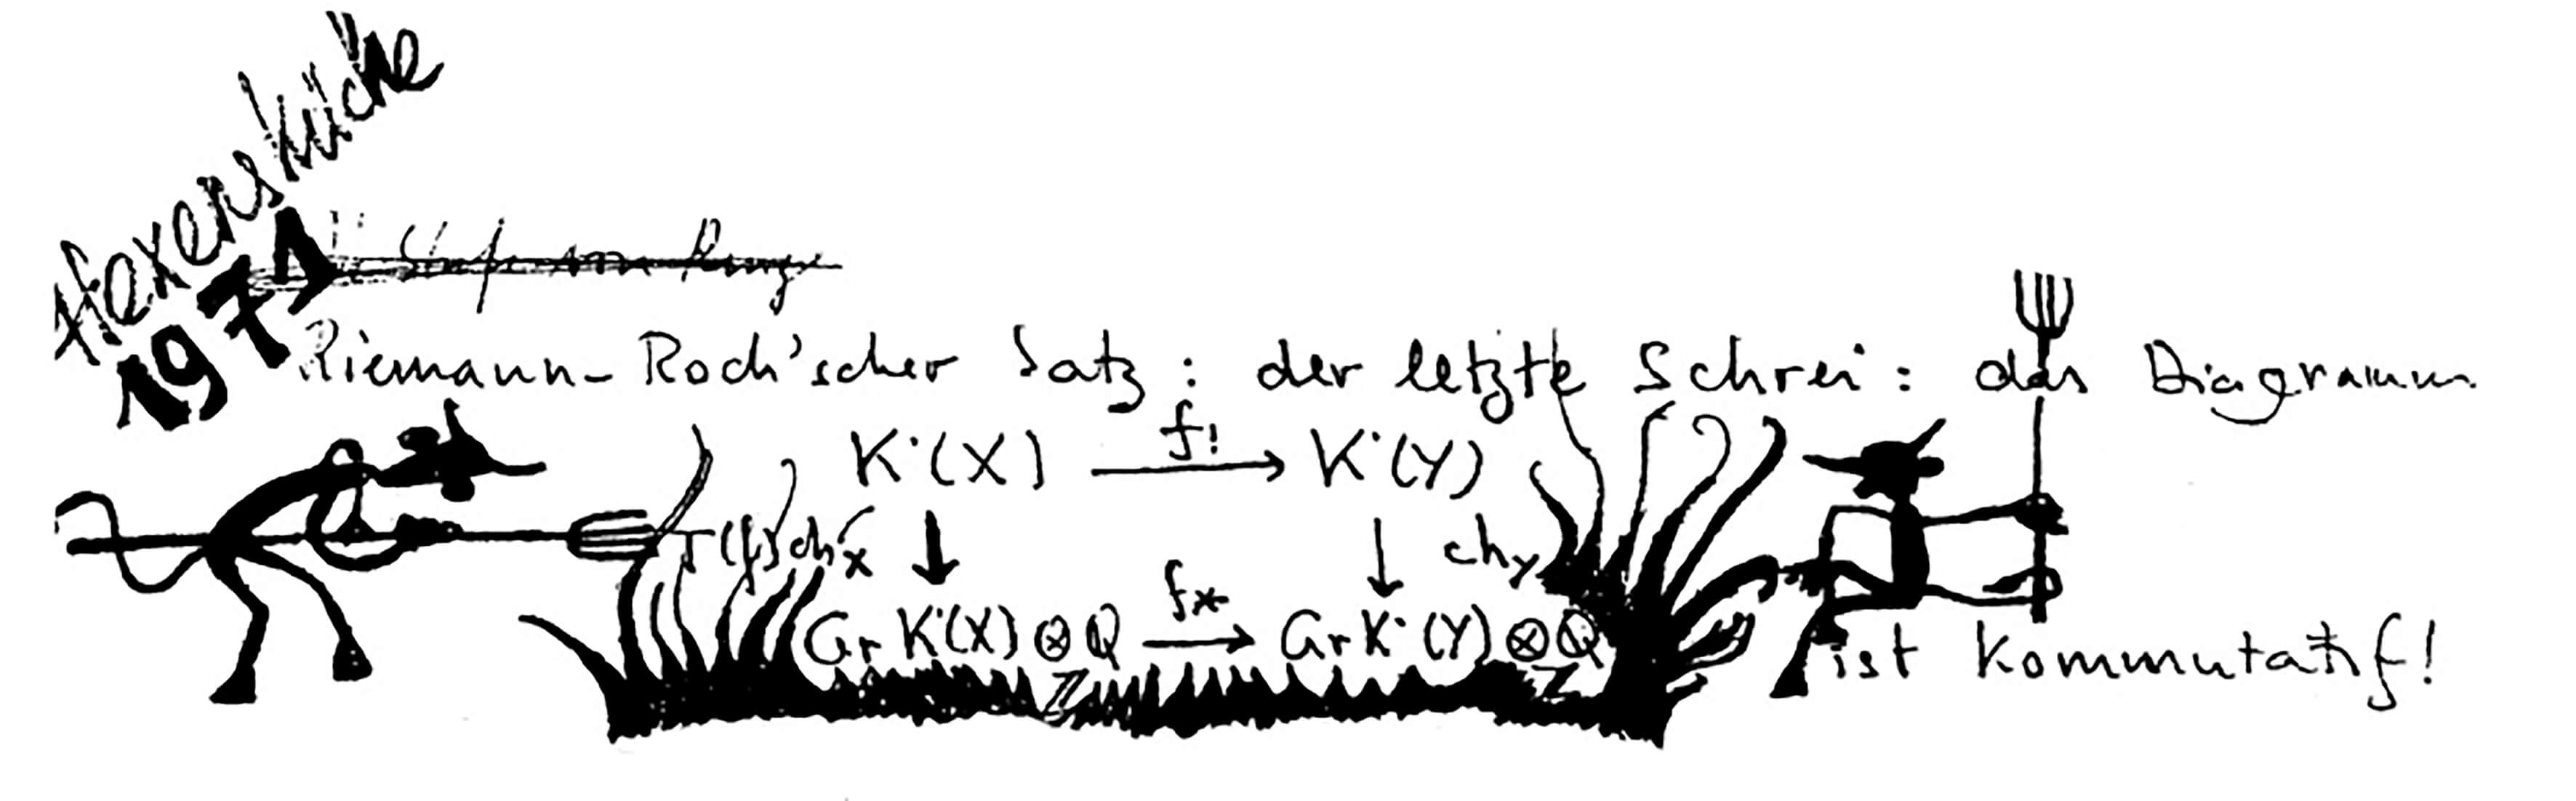 Hexenküche
1971
Riemann-Roch'scher Satz: der letzte Schrei: das Diagramm
K˙(X) f! → K˙(Y)
T(f)ch_X ↓ ↓ ch_Y
Gr K˙(X) ⊗ Q f* → Gr K˙(Y) ⊗ Q
Z Z
ist kommutatif!